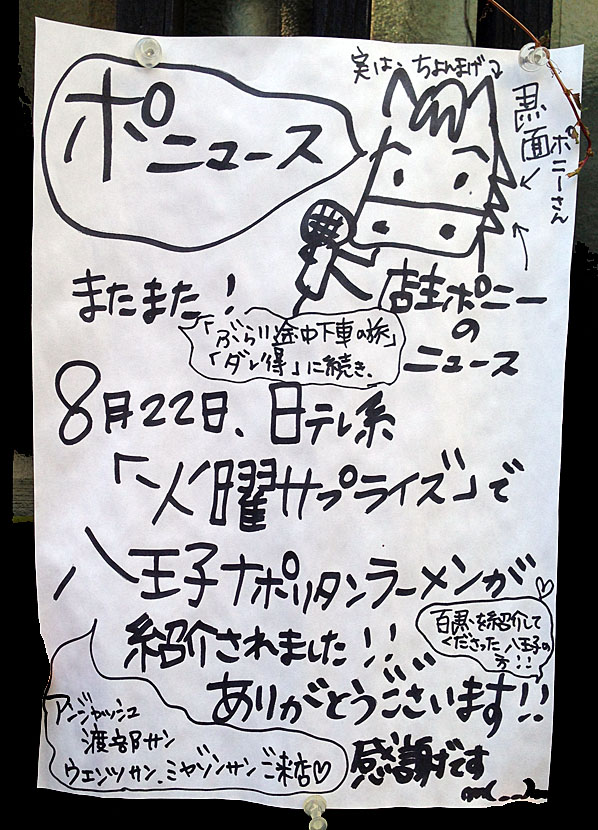 実は、ちょんまげ
ポニュース
黒面
ポニーさん
またまた!
店主ポニー
の
ニュース
「ぶらり途中下車の旅」
「ダレ得」に続き、
8月22日、日テレ系
「火曜サプライズ」で
八王子ナポリタンラーメンが
紹介されました!!
百黒を紹介して
くださった八王子の
方!!
ありがとうございます!!
アンジャッシュ
渡部サン
ウエンツサン、ミヤゾンサンご来店♡
感謝です
m(_ _)m